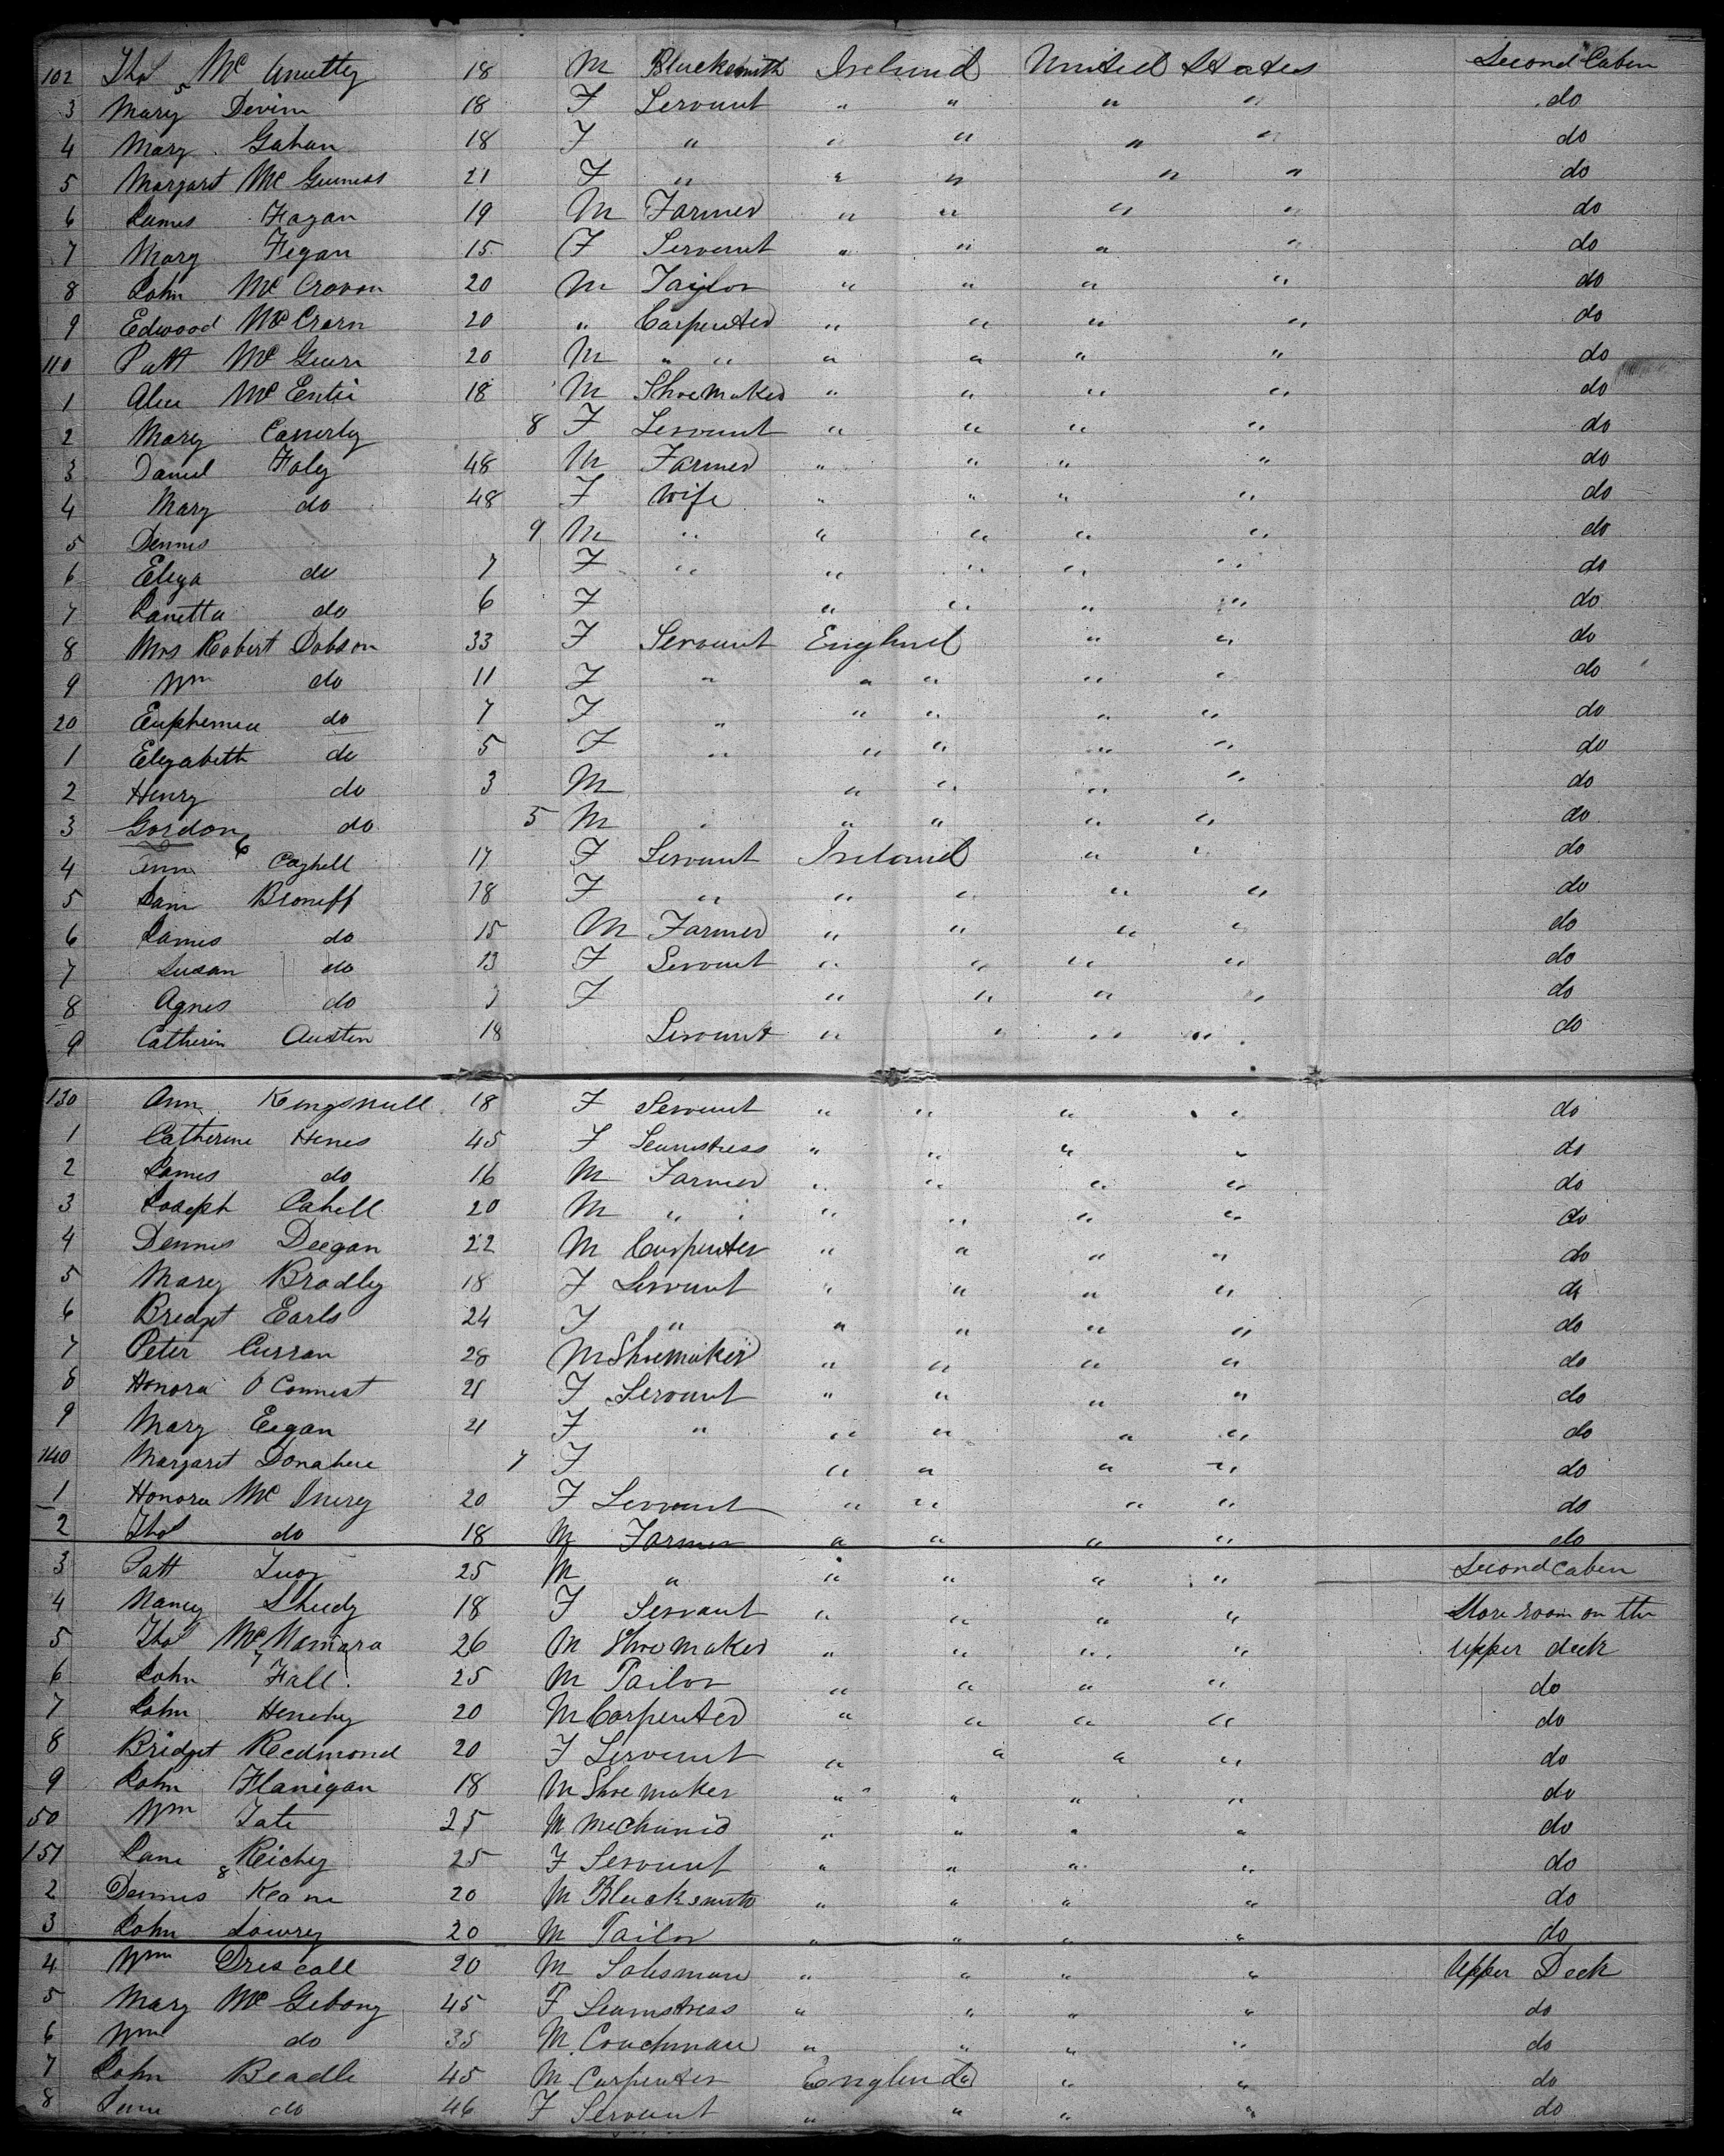 102 Thos Mc Anutty 18 M Blacksmith Ireland United States Second Caben
3 Mary Devim 18 F Servant " " " " do
4 Mary Gahan 18 F " " " " " do
5 Margaret Mc Guiness 21 F " " " " " do
6 James Fagan 19 M Farmer " " " " do
7 Mary Fegan 15 F Servant " " " " do
8 John Mc Cravon 20 M Taylor " " " " do
9 Edwood Mc Crarn 20 " Carpenter " " " " do
110 Patt Mc Guirn 20 M " " " " " " do
1 Alex Mc Entii 18 M Shoemaker " " " " do
2 Mary Casserly 8 F Servant " " " " do
3 Daniel Foly 48 M Farmer " " " " do
4 Mary do 48 F Wife " " " " do
5 Dennis 9 M " " " " " do
6 Eliza do 7 F " " " " " do
7 Janetta do 6 F " " " " do
8 Mrs Robert Dobson 33 F Servant England " " do
9 Wm do 11 F " " " " " do
20 Euphemia do 7 F " " " " " do
1 Elizabeth do 5 F " " " " " do
2 Henry do 3 M " " " " do
3 Gordon do 5 M " " " " do
4 Ann Caghell 17 F Servant Ireland " " do
5 Jane Broniff 18 F " " " " " do
6 James do 15 M Farmer " " " " do
7 Susan do 13 F Servant " " " " do
8 Agnes do F " " " " do
9 Catherin Austen 18 Servant " " " " do
130 Ann Kingsnull 18 F Servant " " " " do
1 Catherine Hines 45 F Seamstress " " " " do
2 James do 16 M Farmer " " " " do
3 Joseph Cahill 20 M " " " " " do
4 Dennis Deegan 22 M Carpenter " " " " do
5 Mary Bradly 18 F Servant " " " " do
6 Bridget Earls 24 F " " " " " do
7 Peter Curran 28 M Shoemaker " " " " do
8 Honora O Connest 21 F Servant " " " " do
9 Mary Eagan 21 F " " " " " do
140 Margaret Donahue 7 F " " " " do
1 Honora Mc Inery 20 F Servant " " " " do
2 Thos do 18 M Farmer " " " " do
3 Patt 25 M " " " " " Second Caben
4 Nancy Sheedy 18 F Servant " " " " Store room on the
5 Thos McNamara 26 M Shoemaker " " " " Upper deck
6 John Fall 25 M Tailor " " " " do
7 John Henehy 20 M Carpenter " " " " do
8 Bridget Reedmond 20 F Servant " " " " do
9 John Flanigan 18 M Shoemaker " " " " do
50 Wm Tate 25 M Mechanic " " " " do
151 Jane Richy 25 F Servant " " " " do
2 Dennis Keane 20 M Blacksmith " " " " do
3 John Lowrey 20 M Tailor " " " " do
4 Wm Driscall 20 M Salesman " " " " Upper Deck
5 Mary Mc Gebony 45 F Seamstress " " " " do
6 Wm do 35 M Coachman " " " " do
7 John Beadle 45 M Carpenter England " " do
8 Jane do 46 F Servant " " " " do